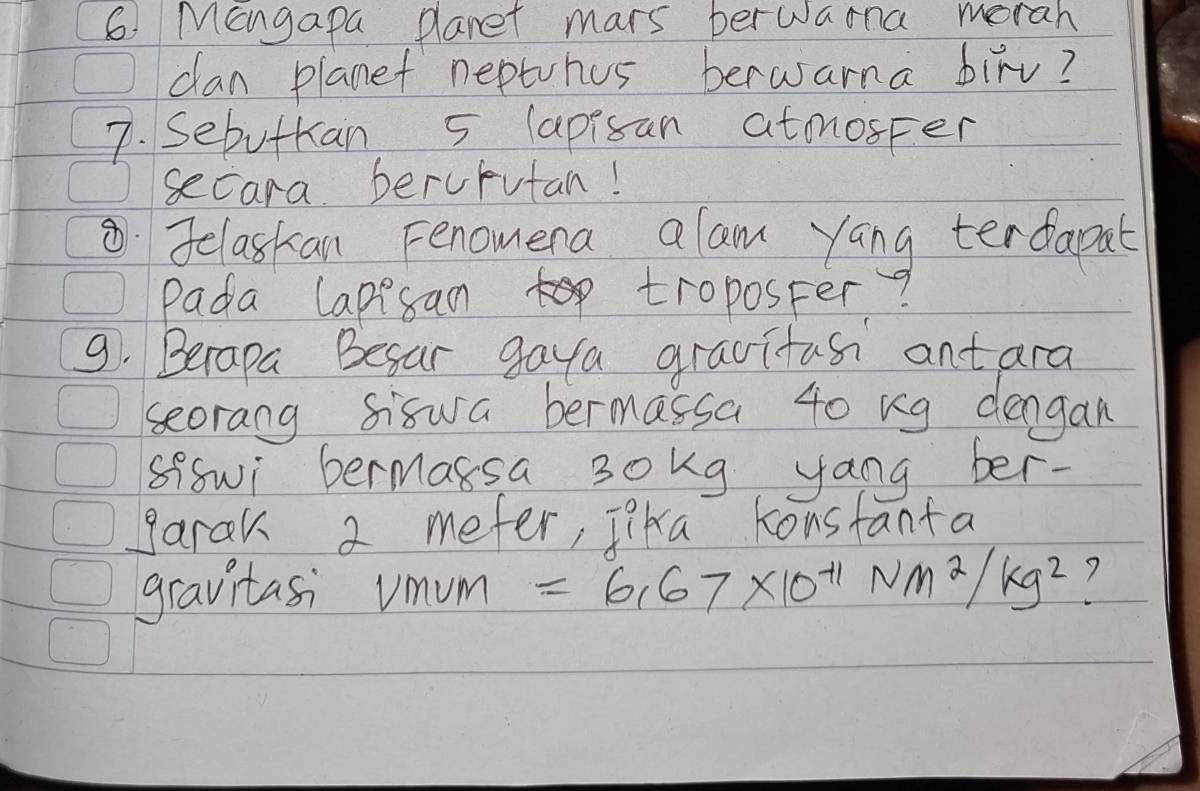 6. Mengapa planet mars berwarna merah
dan planet neptunus berwarna biru?
7. Sebutkan 5 lapisan atmosfer
secara berurutan!
8. Jelaskan Fenomena alam yang terdapat
pada lapisan top troposfer?
9. Berapa Besar gaya gravitasi antara
seorang siswa bermassa 40 kg dengan
siswi bermassa 30 kg yang ber-
jarak 2 meter, jika konstanta
gravitasi umum = 6,67 × 10⁻¹¹ Nm²/kg²?